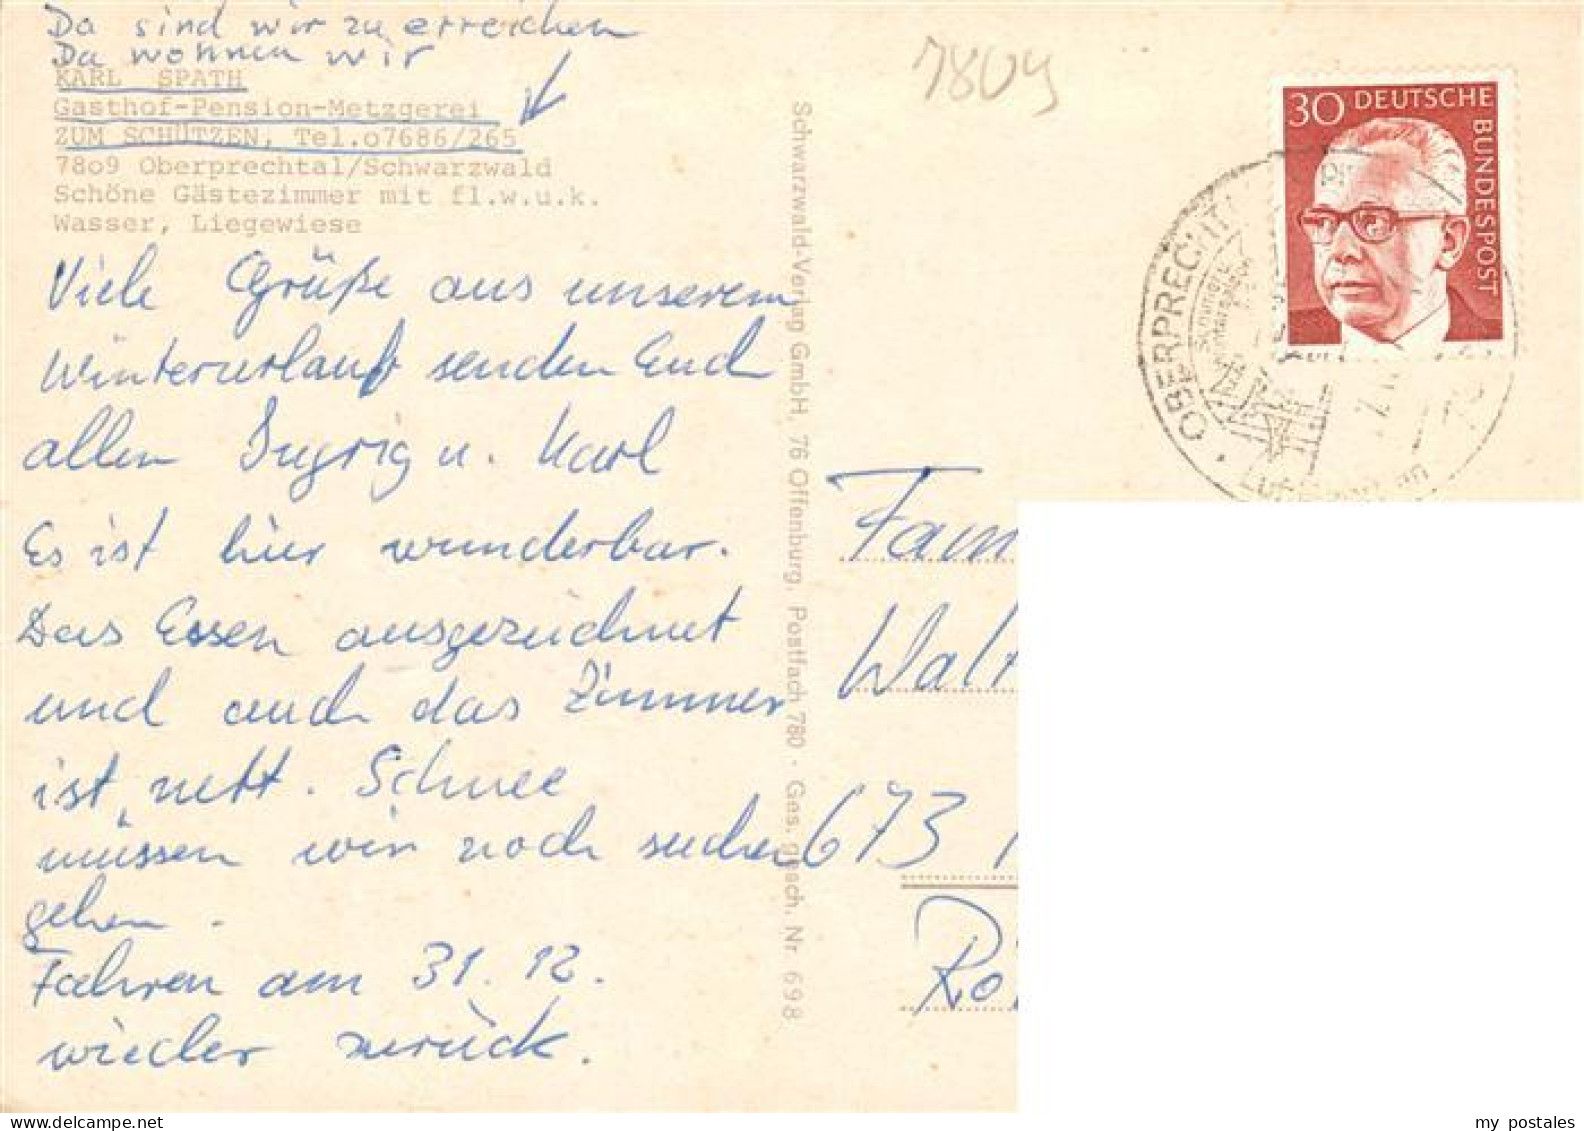 Da sind wir zu erreichen
Da wohnen wir
KARL SPATH
Gasthof-Pension-Metzgerei
ZUM SCHÜTZEN, Tel.o7686/265
78o9 Oberprechtal/Schwarzwald
Schöne Gästezimmer mit fl.w.u.k.
Wasser, Liegewiese
Viele Grüße aus unserem
Winterurlaub senden Euch
allen Ingrig u. Karl
Es ist hier wunderbar.
Das Essen ausgezeichnet
und auch das Zimmer
ist nett. Schnee
müssen wir noch suchen
gehen.
Fahren am 31. 12.
wieder zurück.
Schwarzwald-Verlag GmbH, 76 Offenburg, Postfach 780 · Ges. gesch. Nr. 698
7809
30 DEUTSCHE
BUNDESPOST
OBERPRECHT
Fam
Walt
673
Rö
my postales